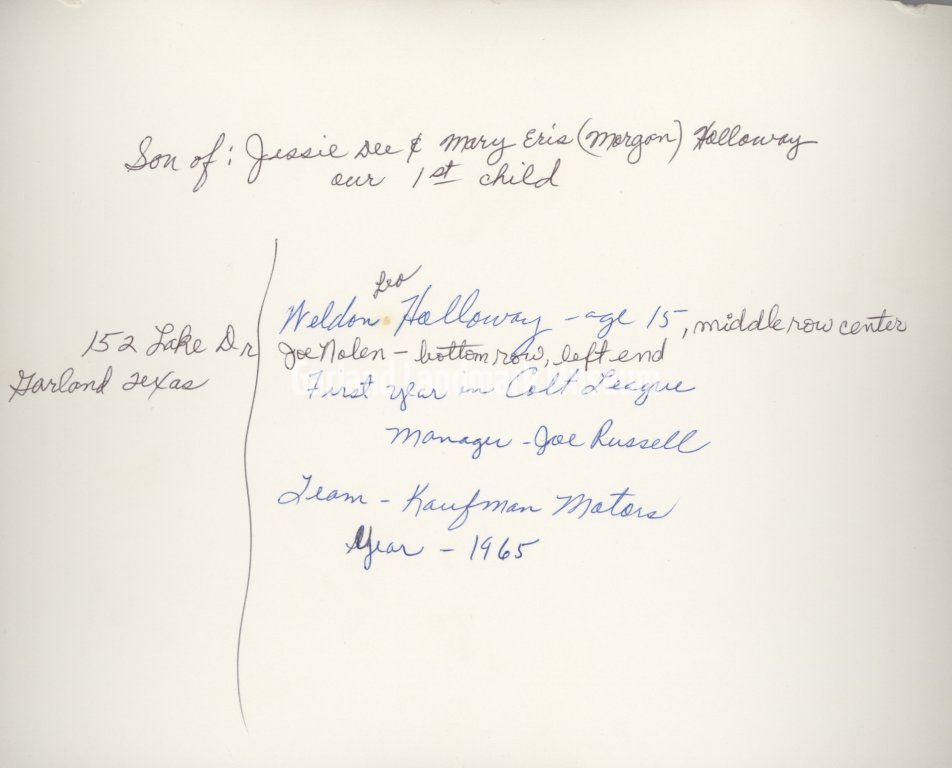 Son of: Jessie Dee & Mary Eris (Morgan) Holloway
our 1st child
Leo
Weldon Holloway - age 15, middle row center
152 Lake Dr
Joe Nolen - bottom row, left end
Garland Texas
First year in Colt League
Manager - Joe Russell
Team - Kaufman Motors
Year - 1965